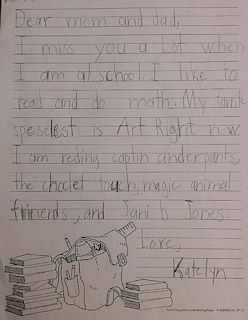 Dear mom and dad,
I miss you a Lot when
I am at school. I like to
read and do math. My
speselest is Art Right now
I am reding captin underpants,
the choclet touch, magic animal
friends, and Juni b Jones.
Love,
Katelyn